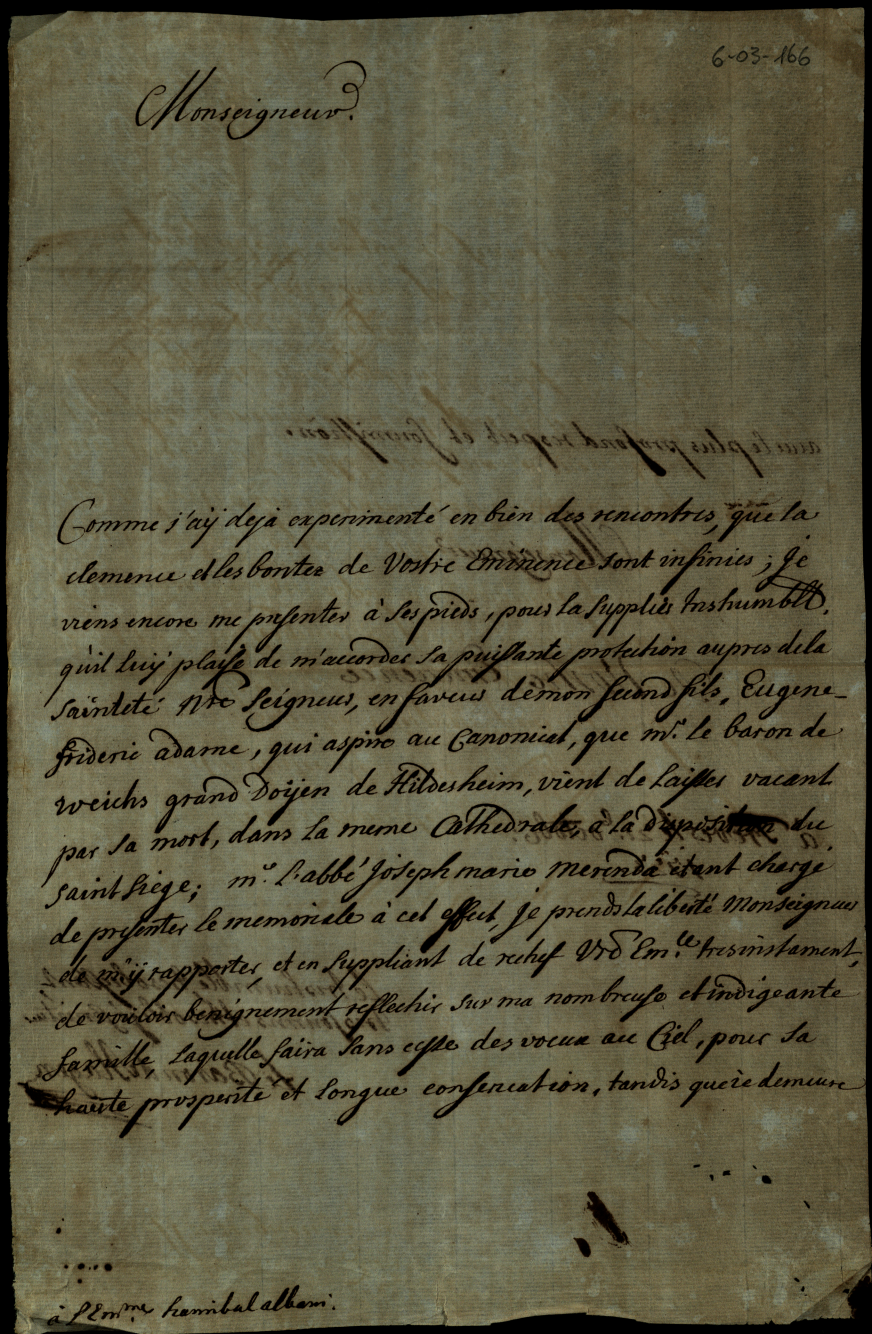 6-03-166
Monseigneur.
Comme j'aÿ deja experimenté en bien des rencontres, que la
clemence et les bontez de Vostre Eminence sont infinies; je
viens encore me presenter à ses pieds, pour la supplier treshumblt.
qu'il luÿ plaise de m'accorder sa puissante protection aupres de la
sainteté Nre Seigneur, en faveur de mon second fils, Eugene-
frideric adame, qui aspire au Canonicat, que mr. le baron de
weichs grand Doÿen de Hildesheim, vient de laisser vacant
par sa mort, dans la meme Cathedrale, à la disposition du
saint siege; mr. l'abbé Joseph marie merenda etant chargé
de presenter le memoriale à cet effect, je prends la liberté Monseigneur
de m'ÿ rapporter, et en suppliant de rechef Vre Emce. tresinstament,
de vouloir benignement reflechir sur ma nombreuse et indigeante
famille, laquelle faira sans cesse des voeux au Ciel, pour sa
haute prosperité et longue conservation, tandis que ie demeure
à l'Emme. hannibal albani.